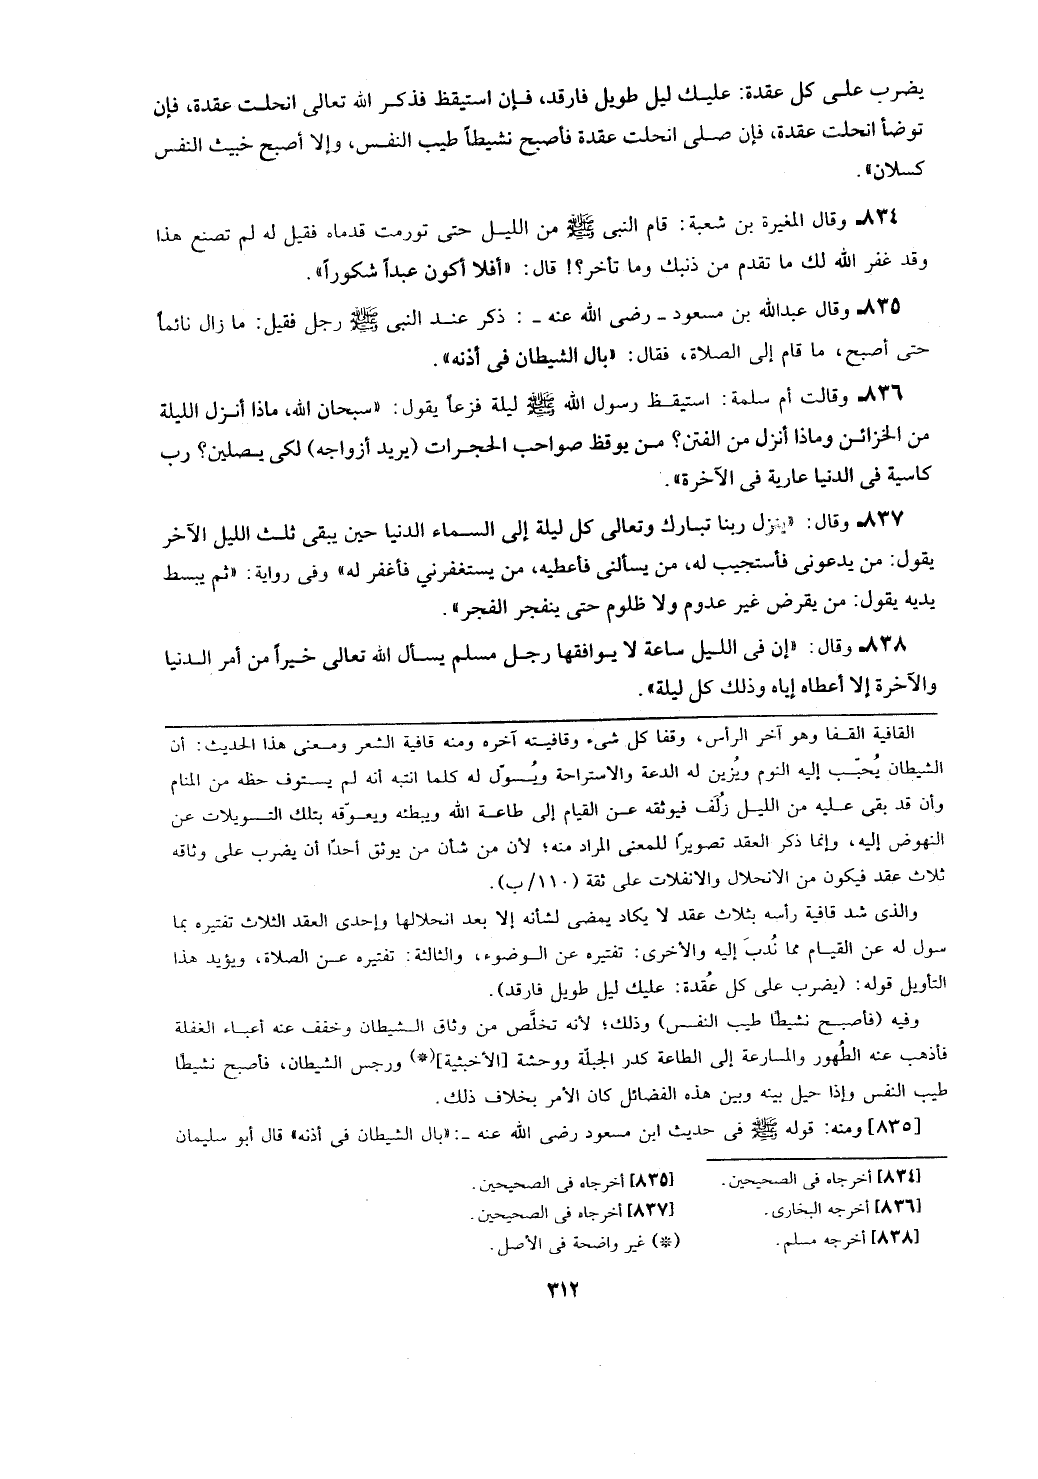 يضرب على كل عقدة: عليك ليل طويل فارقد، فإن استيقظ فذكر الله تعالى انحلت عقدة، فإن
توضأ انحلت عقدة، فإن صلى انحلت عقدة فأصبح نشيطاً طيب النفس، وإلا أصبح خبيث النفس
كسلان».
٨٣٤ـ وقال المغيرة بن شعبة: قام النبى ﷺ من الليل حتى تورمت قدماه فقيل له لم تصنع هذا
وقد غفر الله لك ما تقدم من ذنبك وما تأخر؟! قال: «أفلا أكون عبداً شكوراً».
٨٣٥ـ وقال عبدالله بن مسعود ـ رضى الله عنه ـ : ذكر عند النبى ﷺ رجل فقيل: ما زال نائماً
حتى أصبح، ما قام إلى الصلاة، فقال: «بال الشيطان فى أذنه».
٨٣٦ـ وقالت أم سلمة: استيقظ رسول الله ﷺ ليلة فزعاً يقول: «سبحان الله، ماذا أنزل الليلة
من الخزائن وماذا أنزل من الفتن؟ من يوقظ صواحب الحجرات (يريد أزواجه) لكى يصلين؟ رب
كاسية فى الدنيا عارية فى الآخرة».
٨٣٧ـ وقال: «ينزل ربنا تبارك وتعالى كل ليلة إلى السماء الدنيا حين يبقى ثلث الليل الآخر
يقول: من يدعونى فأستجيب له، من يسألنى فأعطيه، من يستغفرني فأغفر له» وفى رواية: «ثم يبسط
يديه يقول: من يقرض غير عدوم ولا ظلوم حتى ينفجر الفجر».
٨٣٨ـ وقال: «إن فى الليل ساعة لا يوافقها رجل مسلم يسأل الله تعالى خيراً من أمر الدنيا
والآخرة إلا أعطاه إياه وذلك كل ليلة».
القافية القفا وهو آخر الرأس، وقفا كل شىء وقافيته آخره ومنه قافية الشعر ومعنى هذا الحديث: أن
الشيطان يُحبّب إليه النوم ويُزين له الدعة والاستراحة ويُسوّل له كلما انتبه أنه لم يستوف حظه من المنام
وأن قد بقى عليه من الليل زُلَف فيوثقه عن القيام إلى طاعة الله ويبطئه ويعوّقه بتلك التسويلات عن
النهوض إليه، وإنما ذكر العقد تصويرًا للمعنى المراد منه؛ لأن من شأن من يوثق أحدًا أن يضرب على وثاقه
ثلاث عقد فيكون من الانحلال والانفلات على ثقة (١١٠/ب).
والذى شد قافية رأسه بثلاث عقد لا يكاد يمضى لشأنه إلا بعد انحلالها وإحدى العقد الثلاث تفتيره بما
سول له عن القيام مما نُدبَ إليه والأخرى: تفتيره عن الوضوء، والثالثة: تفتيره عن الصلاة، ويؤيد هذا
التأويل قوله: (يضرب على كل عُقدة: عليك ليل طويل فارقد).
وفيه (فأصبح نشيطًا طيب النفس) وذلك؛ لأنه تخلَّص من وثاق الشيطان وخفف عنه أعباء الغفلة
فأذهب عنه الطُهور والمسارعة إلى الطاعة كدر الجبلّة ووحشة [الأخبثية](*) ورجس الشيطان، فأصبح نشيطًا
طيب النفس وإذا حيل بينه وبين هذه الفضائل كان الأمر بخلاف ذلك.
[٨٣٥] ومنه: قوله ﷺ فى حديث ابن مسعود رضى الله عنه ـ: «بال الشيطان فى أذنه» قال أبو سليمان
[٨٣٤] أخرجاه فى الصحيحين. [٨٣٥] أخرجاه فى الصحيحين.
[٨٣٦] أخرجه البخارى. [٨٣٧] أخرجاه فى الصحيحين.
[٨٣٨] أخرجه مسلم. (*) غير واضحة فى الأصل.
٣١٢